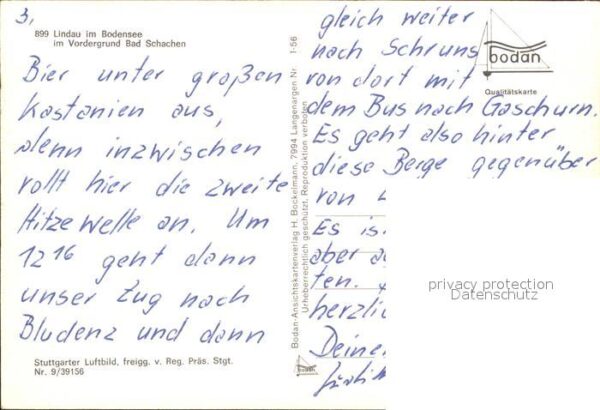 3,
899 Lindau im Bodensee
im Vordergrund Bad Schachen
Bier unter großen
Kastanien aus,
denn inzwischen
rollt hier die zweite
Hitzewelle an. Um
12 16 geht dann
unser Zug nach
Bludenz und dann
Stuttgarter Luftbild, freigg. v. Reg. Präs. Stgt.
Nr. 9/39156
Bodan Ansichtskartenverlag H. Bockelmann, 7994 Langenargen Nr. 1-56
Urheberrechtlich geschützt. Reproduktion verboten
bodan
gleich weiter
nach Schruns
von dort mit
dem Bus nach Gaschurn.
Es geht also hinter
diese Berge gegenüber
von
Es is
aber
ten.
herzlic
Deine
bodan
Qualitätskarte
privacy protection
Datenschutz